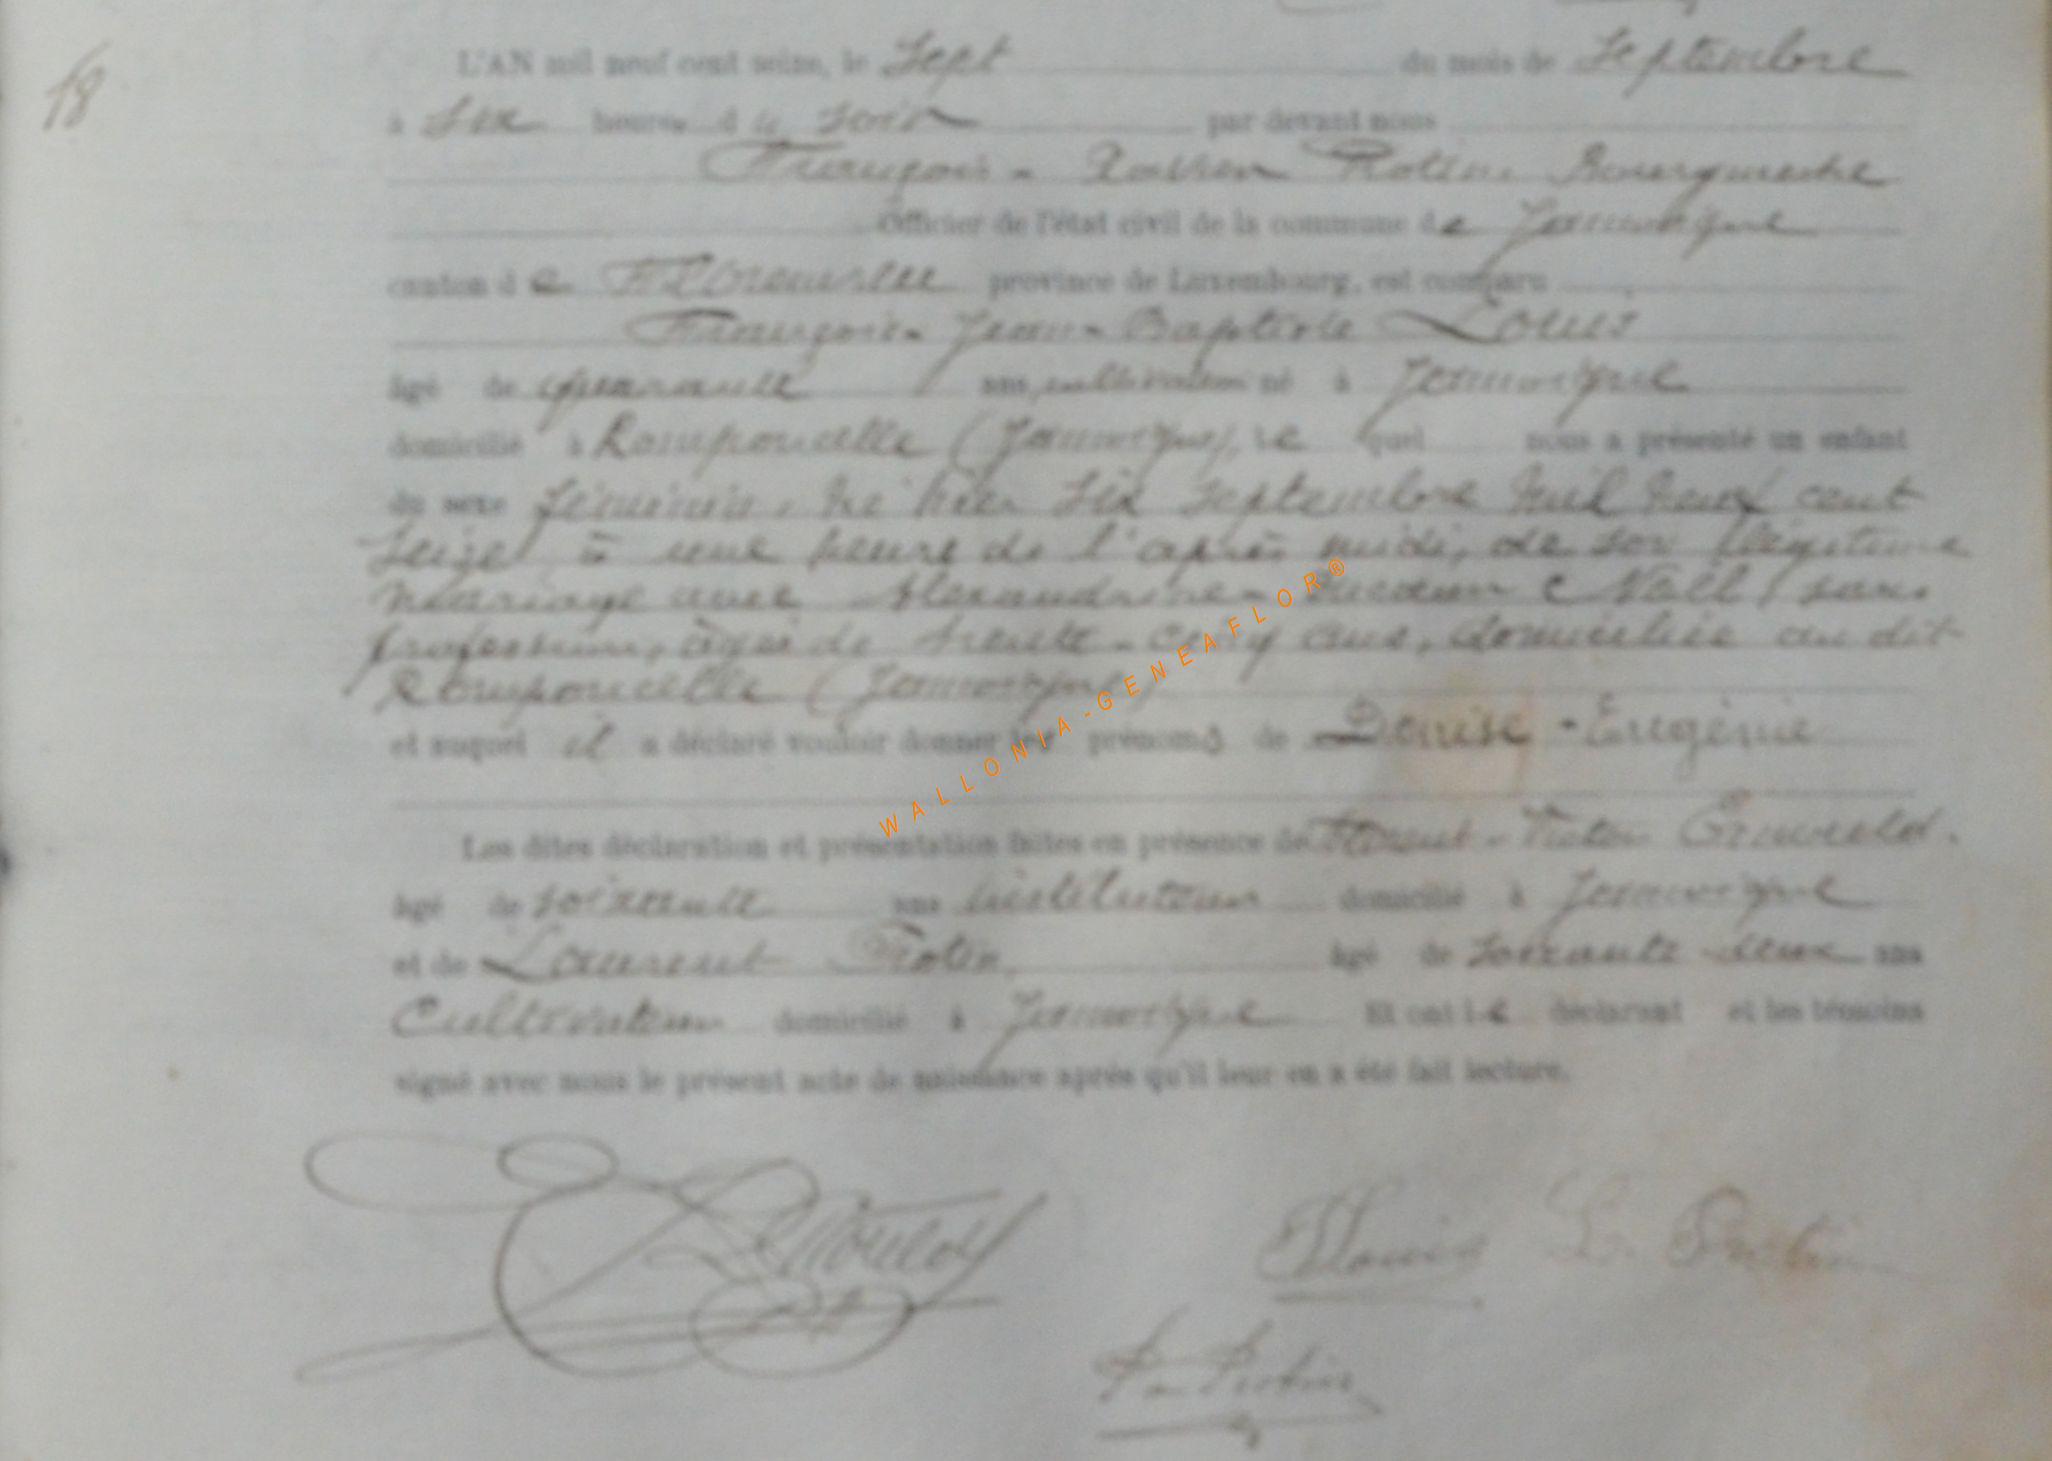 18
L'AN mil neuf cent seize, le Sept du mois de Septembre
à six heures du soir par devant nous
François-Xavier Rotin, Bourgmestre
Officier de l'état civil de la commune de Jamoigne
canton de Florenville province de Luxembourg, est comparu
François-Jean-Baptiste Louis
âgé de quarante ans, cultivateur né à Jamoigne
domicilié à Romponcelle (Jamoigne), le quel nous a présenté un enfant
du sexe féminin, né hier six septembre mil neuf cent
seize à une heure de l'après midi, de son légitime
mariage avec Alexandrine sans
profession, âgée de trente-cinq ans, domiciliée au dit
Romponcelle (Jamoigne)
et auquel il a déclaré vouloir donner les prénoms de Denise-Eugénie
Les dites déclaration et présentation faites en présence de Victor
âgé de soixante ans instituteur domicilié à Jamoigne
et de Laurent Rotin âgé de soixante-deux ans
Cultivateur domicilié à Jamoigne Et ont le déclarant et les témoins
signé avec nous le présent acte de naissance après qu'il leur en a été fait lecture.
Louis L.
WALLONIA-GENEAFLOR®